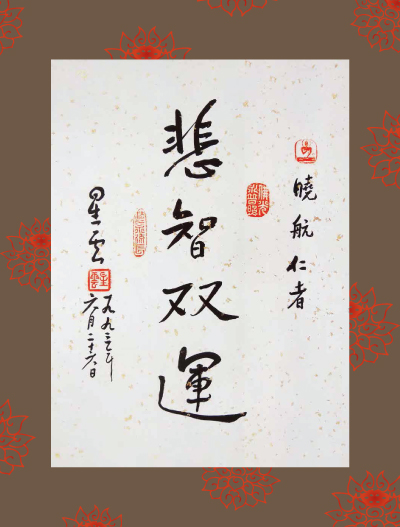 曉航仁者
悲智双運
星雲
一九九三年
六月二十六日